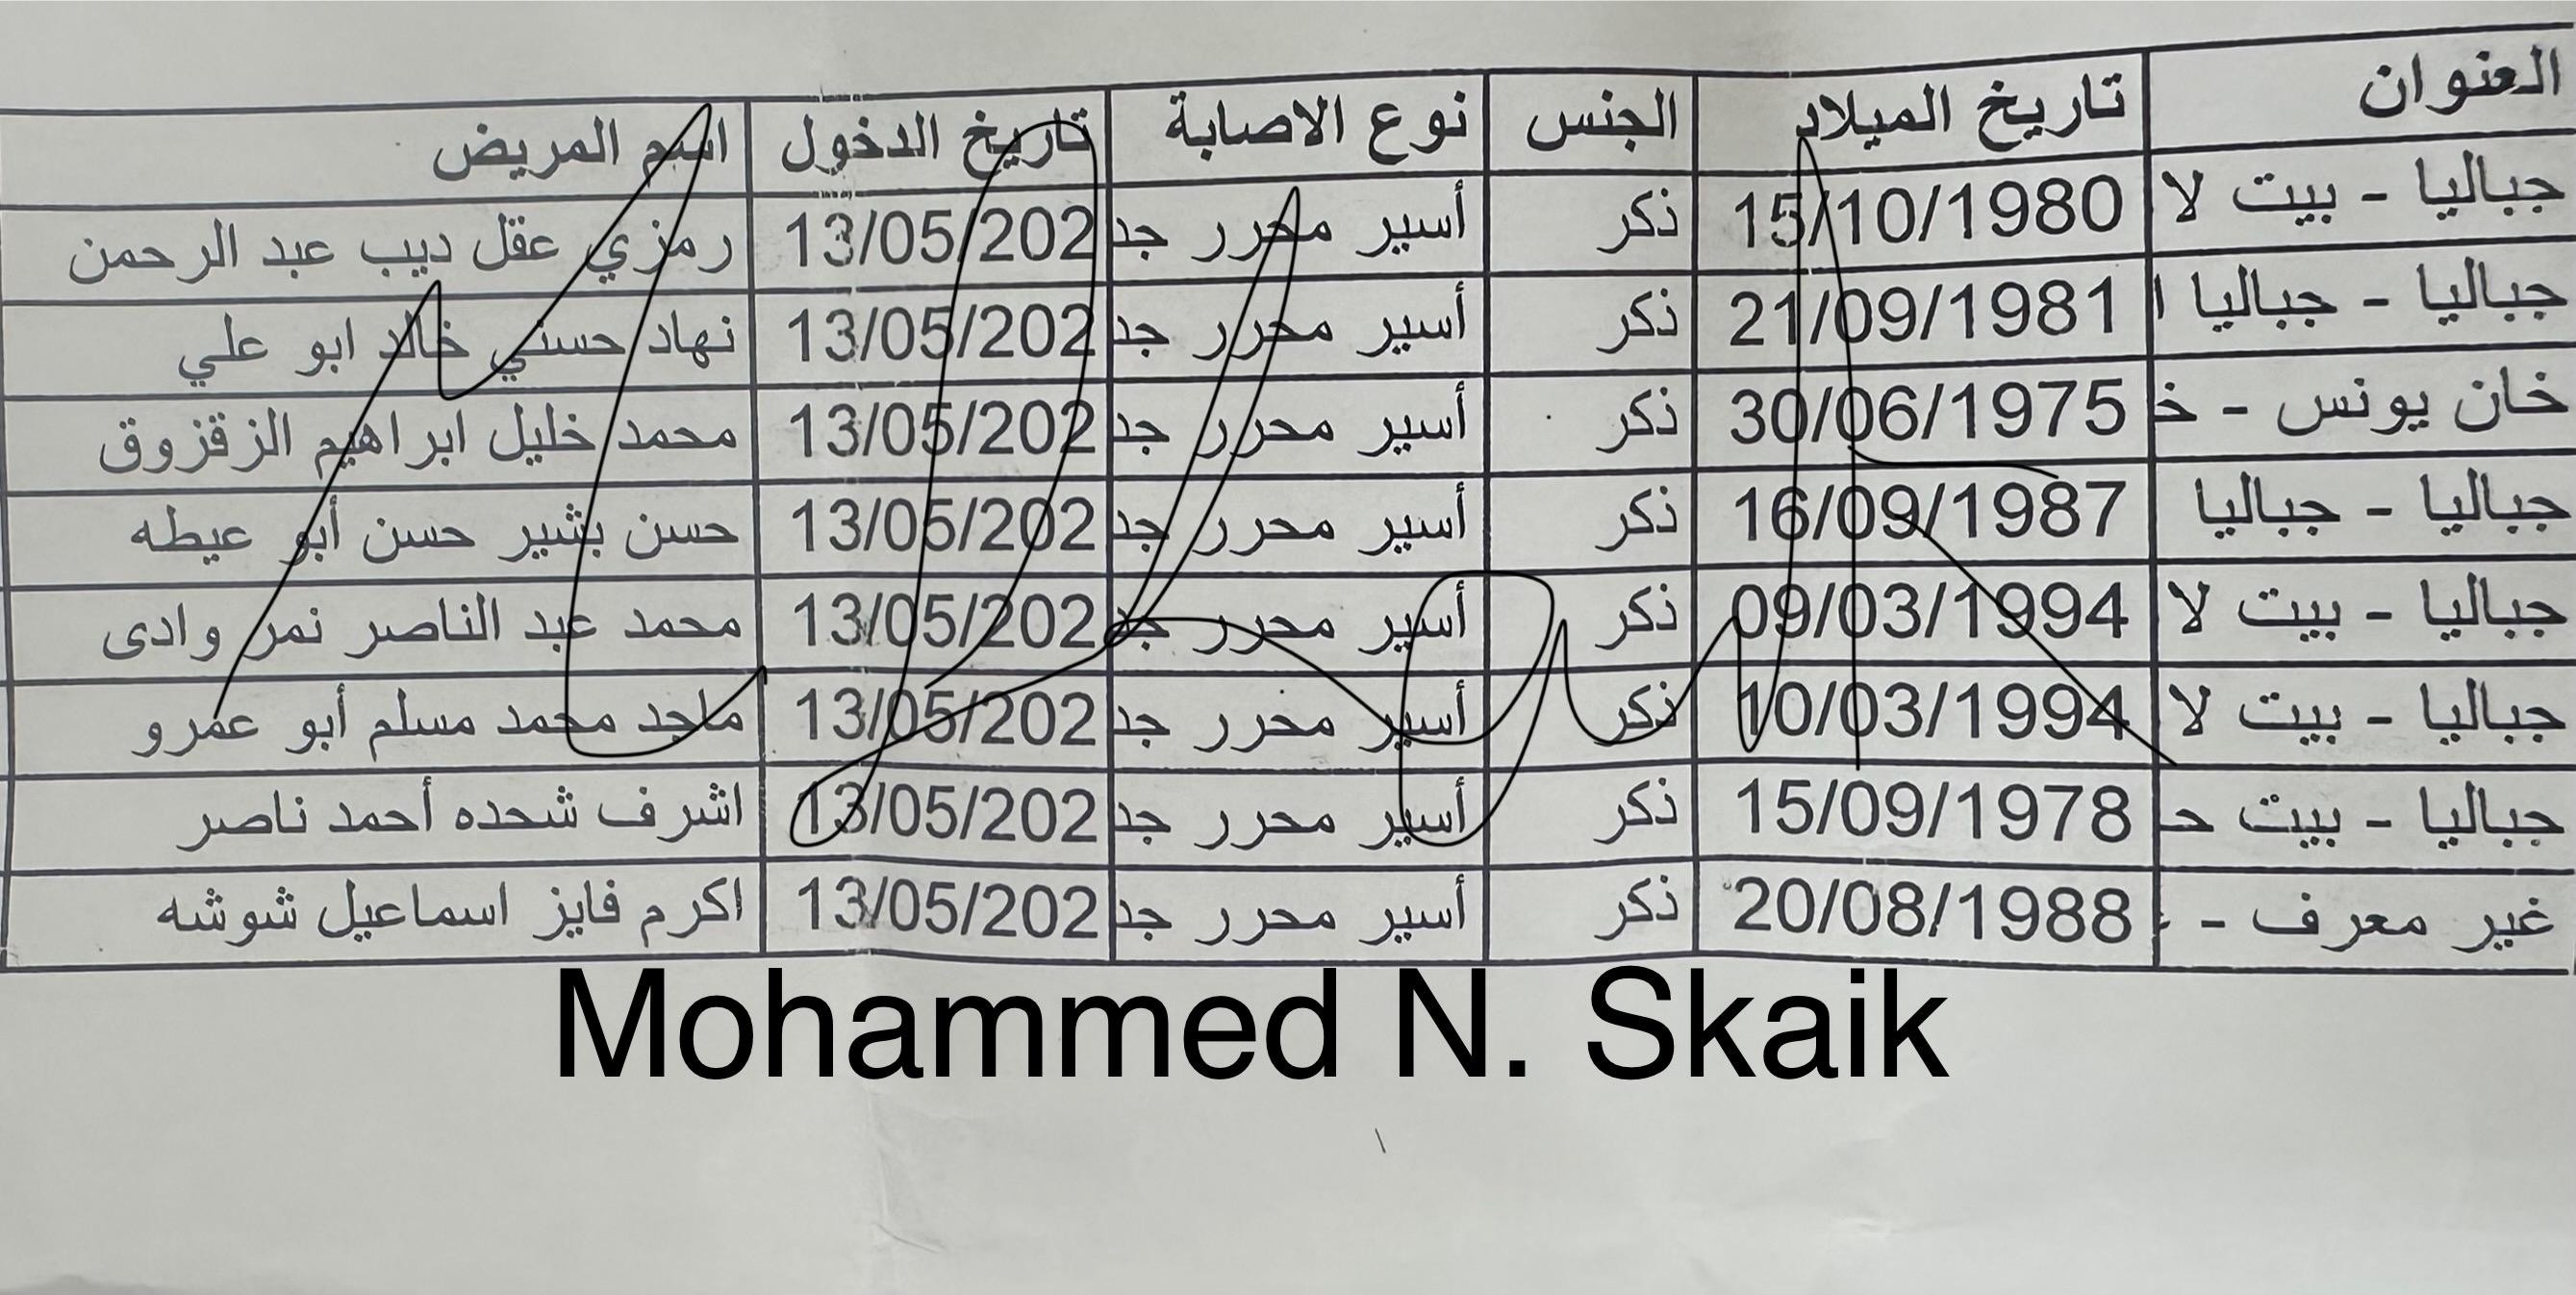 اسم المريض تاريخ الدخول نوع الاصابة الجنس تاريخ الميلاد العنوان
رمزي عقل ديب عبد الرحمن 13/05/202 أسير محرر جد ذكر 15/10/1980 جباليا - بيت لا
نهاد حسني خالد ابو علي 13/05/202 أسير محرر جد ذكر 21/09/1981 جباليا - جباليا ا
محمد خليل ابراهيم الزقزوق 13/05/202 أسير محرر جد ذكر 30/06/1975 خان يونس - خ
حسن بشير حسن أبو عيطه 13/05/202 أسير محرر جد ذكر 16/09/1987 جباليا - جباليا
محمد عبد الناصر نمر وادى 13/05/202 أسير محرر جد ذكر 09/03/1994 جباليا - بيت لا
ماجد محمد مسلم أبو عمرو 13/05/202 أسير محرر جد ذكر 10/03/1994 جباليا - بيت لا
اشرف شحده أحمد ناصر 13/05/202 أسير محرر جد ذكر 15/09/1978 جباليا - بيت حـ
اكرم فايز اسماعيل شوشه 13/05/202 أسير محرر جد ذكر 20/08/1988 غير معرف -
Mohammed N. Skaik